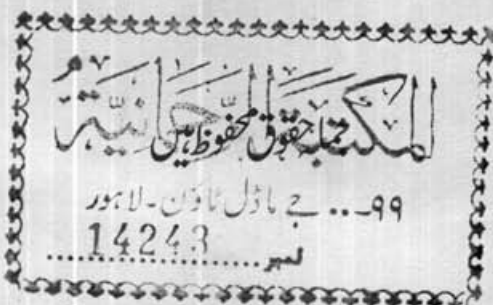 المكتبة الرحمانيّة
جملہ حقوق محفوظ ہیں
۹۹-.. جے ماڈل ٹاؤن - لاہور
نمبر ..........14243..........